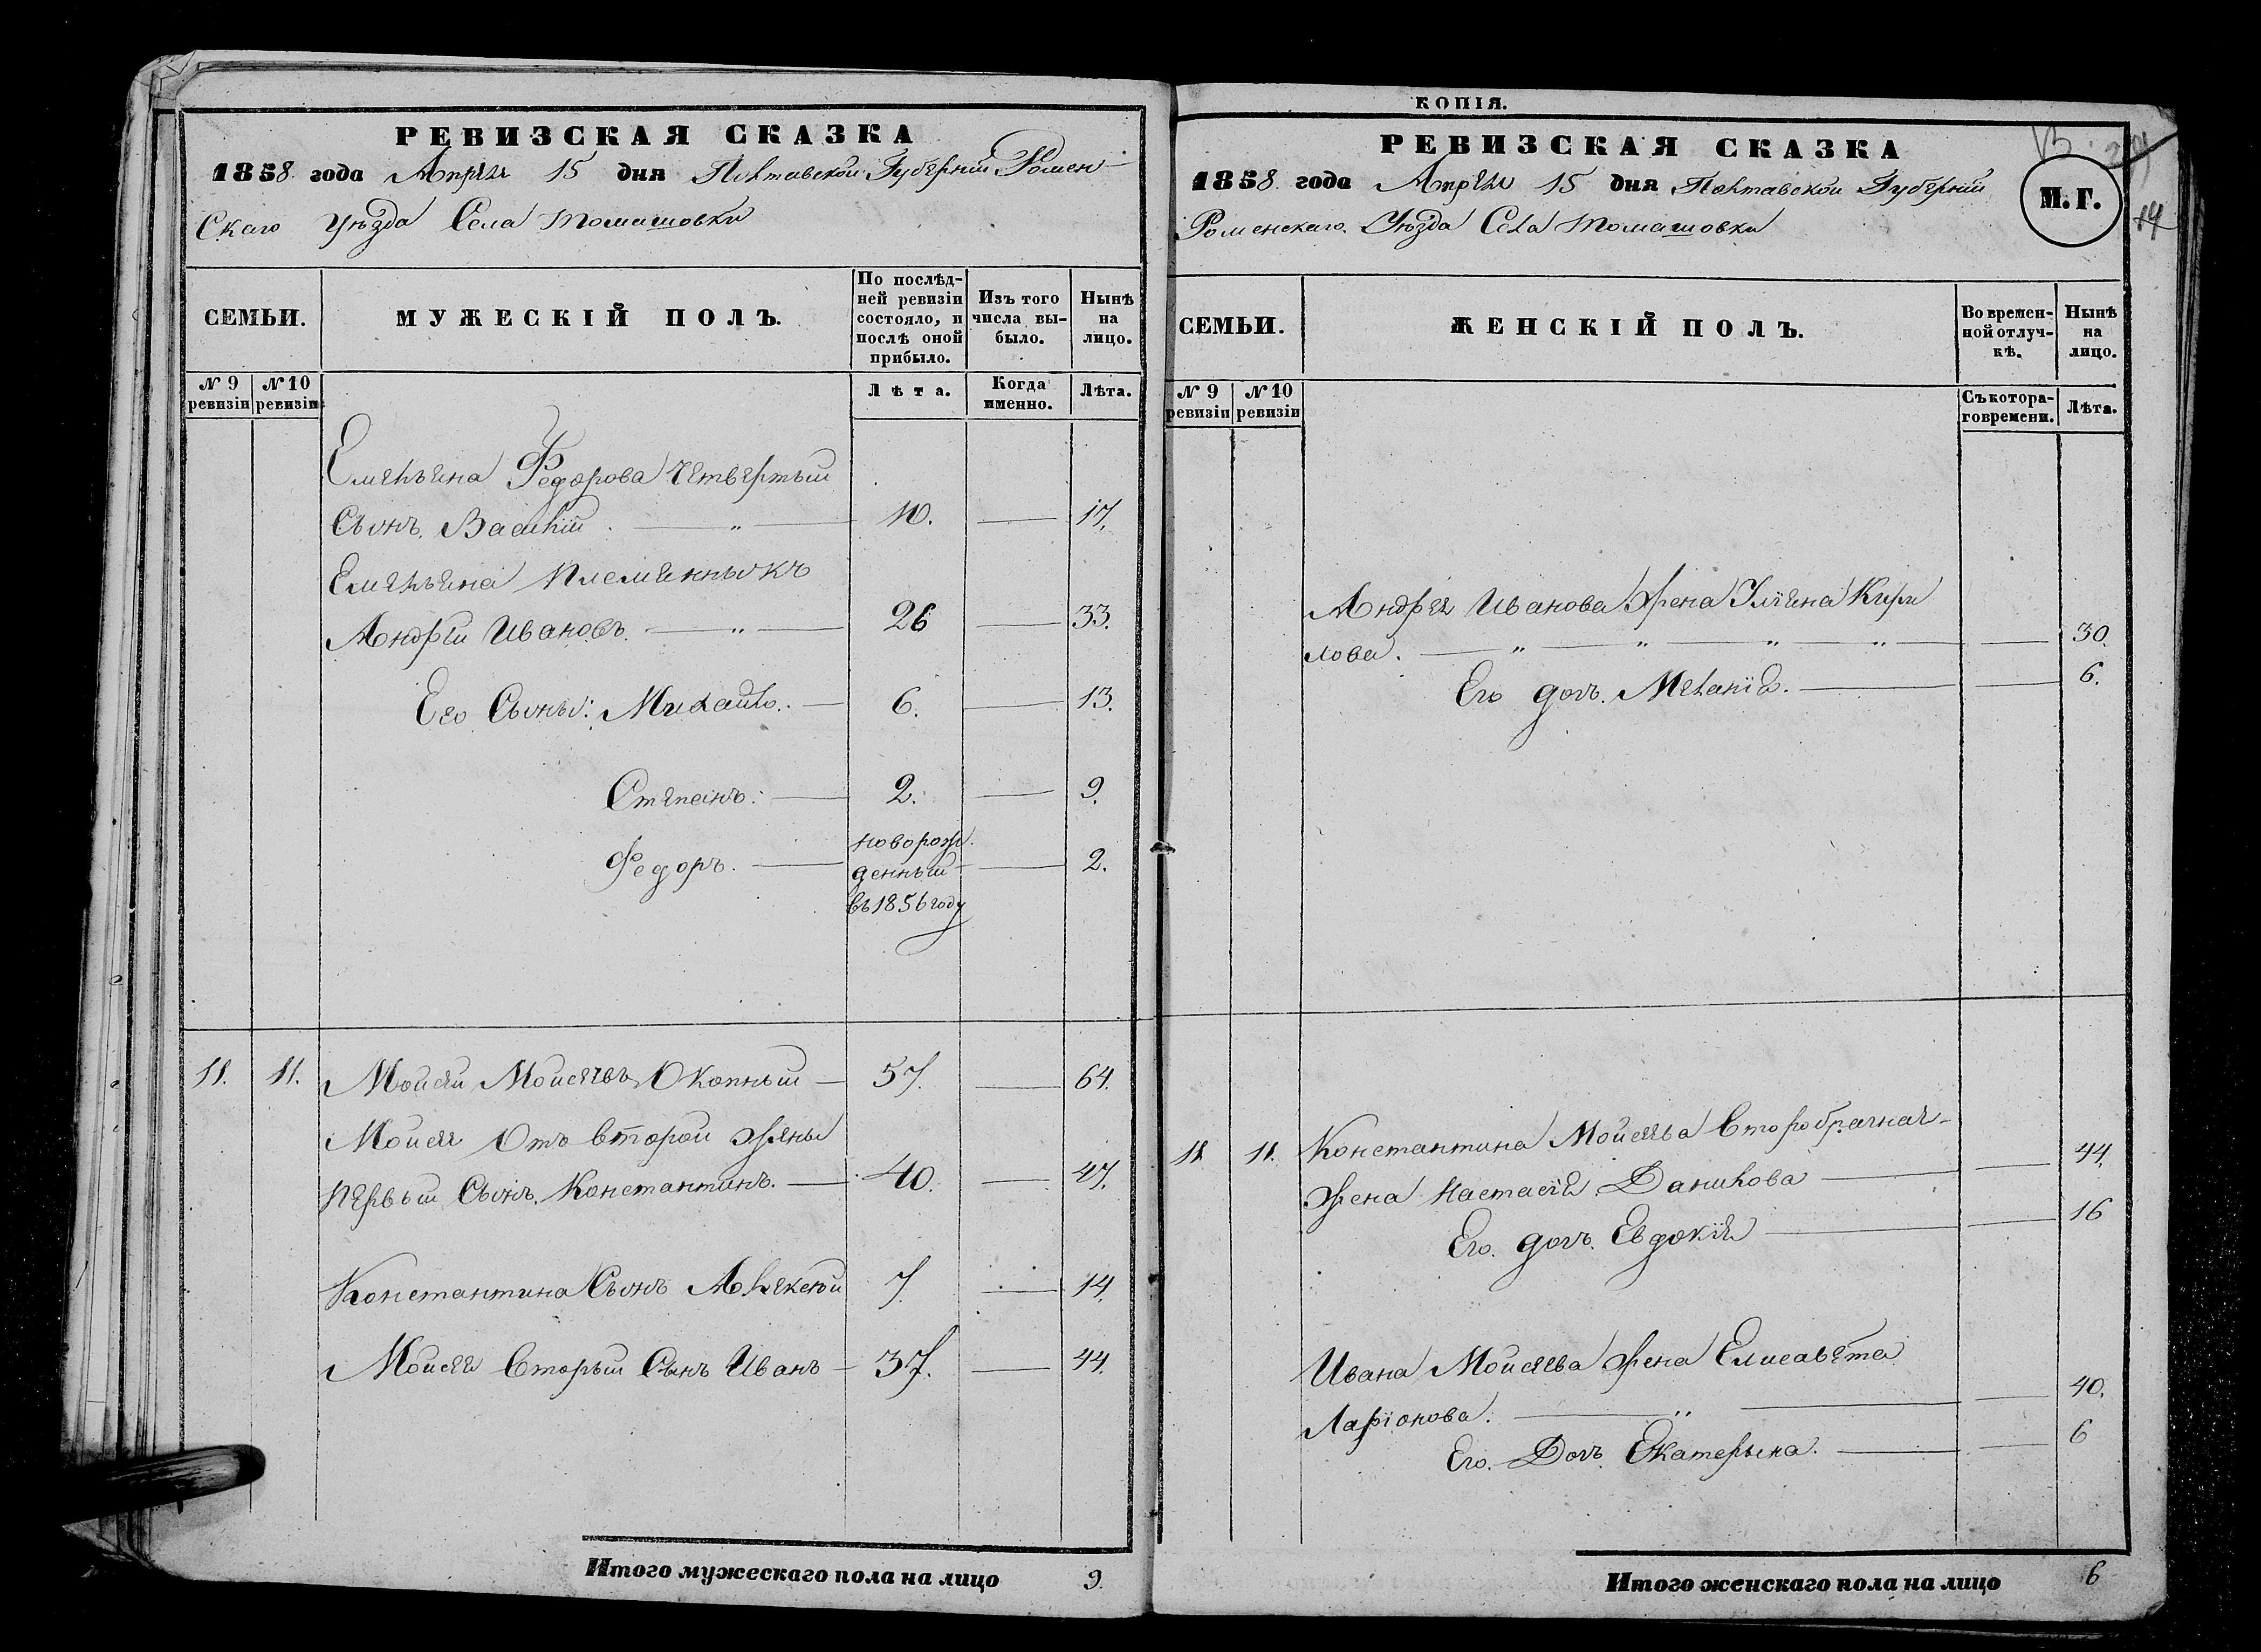 РЕВИЗСКАЯ СКАЗКА
1858. года Апреля 15 дня Полтавской Губерніи Ромен-
скаго Уѣзда Села Томашовки
СЕМЬИ.
МУЖЕСКІЙ ПОЛЪ.
По послѣд-
ней ревизіи
состояло, и
послѣ оной
прибыло.
Изъ того
числа вы-
было.
Нынѣ
на
лицо.
№ 9
ревизіи
№ 10
ревизіи
Лѣта.
Когда
именно.
Лѣта.
Емельяна Федорова четвертый
Сынъ Василій 10. 17.
Емельяна племянныкъ
Андрей Ивановъ. 26 33.
Его Сыны: Михайло. 6. 13.
Степанъ. 2. 9.
Федоръ. новорож
денный 2.
въ 1856 году
11. 11. Мойсей Мойсеевъ Окопный 57. 64.
Мойсея Отъ второй жены
первый Сынъ Константинъ. 40. 47.
Константина Сынъ Алексей 7 14.
Мойсея вторый Сынъ Иванъ 37. 44.
Итого мужескаго пола на лицо 9.
КОПІЯ.
РЕВИЗСКАЯ СКАЗКА
1858. года Апреля 15 дня Полтавской Губерніи
Роменскаго Уѣзда Села Томашовки
М. Г.
14
СЕМЬИ.
ЖЕНСКІЙ ПОЛЪ.
Во времен-
ной отлуч-
кѣ.
Нынѣ
на
лицо.
№ 9
ревизіи
№ 10
ревизіи
Съ котора-
го времени.
Лѣта.
Андрея Иванова жена Уліяна Кири
лова. 30.
Его дочь Меланія. 6.
11. 11. Константина Мойсеева второбрачная
жена Настасія Данилова 44.
Его дочь Евдокія 16
Ивана Мойсеева жена Елисавета
Ларіонова. 40.
Его Дочь Екатерына. 6
Итого женскаго пола на лицо 6